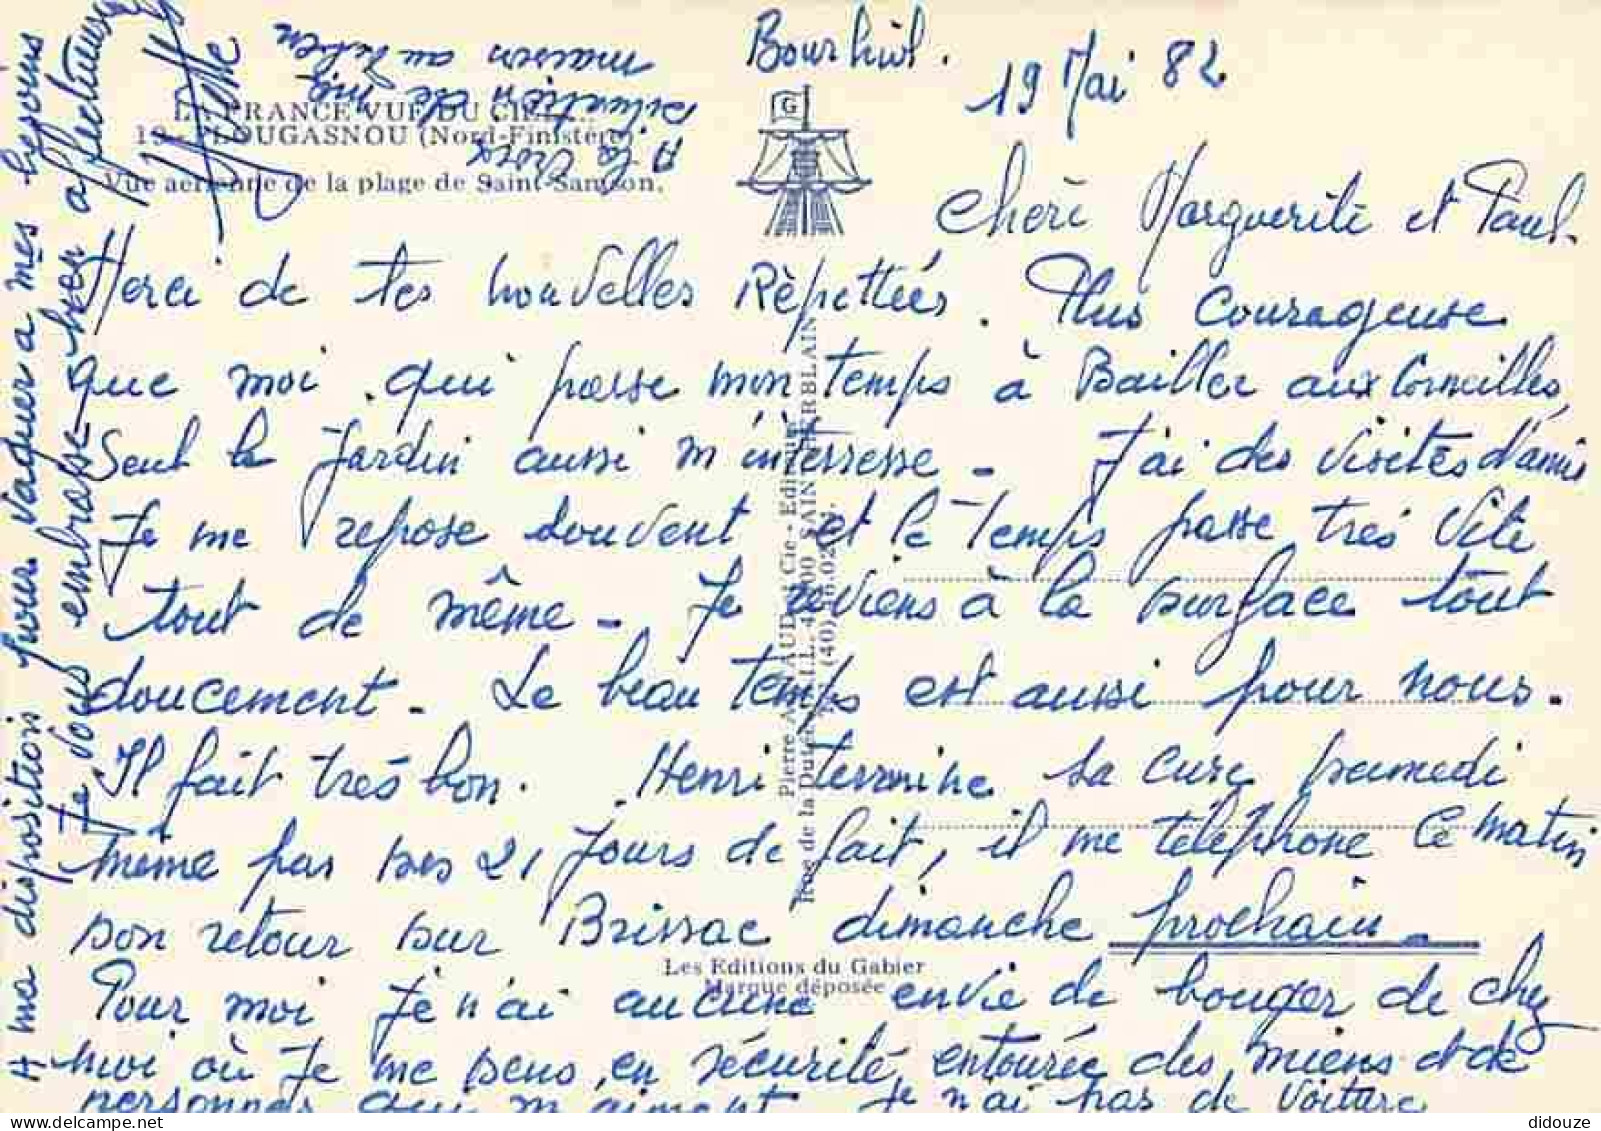 Bourhiol.
19 Mai 82
LA FRANCE VUE DU CIEL...
19 - PLOUGASNOU (Nord-Finistère)
Vue aérienne de la plage de Saint-Samson.
G
A la croix
situation de ma
maison au
Chère Marguerite et Paul.
Merci de tes nouvelles Rèpettées. Plus Courageuse
que moi. qui passe mon temps à Bailler aux Corneilles,
Seul le Jardin aussi m'intéresse - J'ai des visites d'amis
Je me repose souvent et le Temps passe très vite
tout de même - Je reviens à la surface tout
doucement - Le beau temps est aussi pour nous.
Il fait très bon. Henri termine sa cure samedi
même pas ses 21 Jours de fait, il me téléphone ce matin
son retour sur Brissac dimanche prochain -
Pour moi Je n'ai aucune envie de bouger de chez
moi où Je me sens, en sécurité, entourée des miens et de
personnes qui m'aiment. Je n'ai pas de voiture
A ma disposition pour vaquer a mes besoins
Je vous embrasse bien affectueusement
Yvette
Pierre ARTAUD et Cie - Editeurs
Rue de la Durée
Les Editions du Gabier
Marque déposée
didouze
delcampe.net